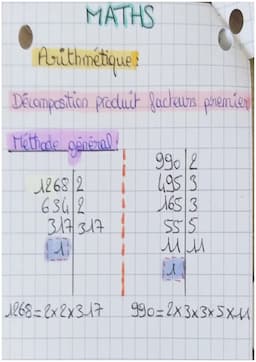 MATHS
Arithmétique:
Décomposition produit facteurs premier
Méthode général:
1268|2
634|2
317|317
1
990|2
495|3
165|3
55|5
11|11
1
1268=2×2×317
990=2×3×3×5×11